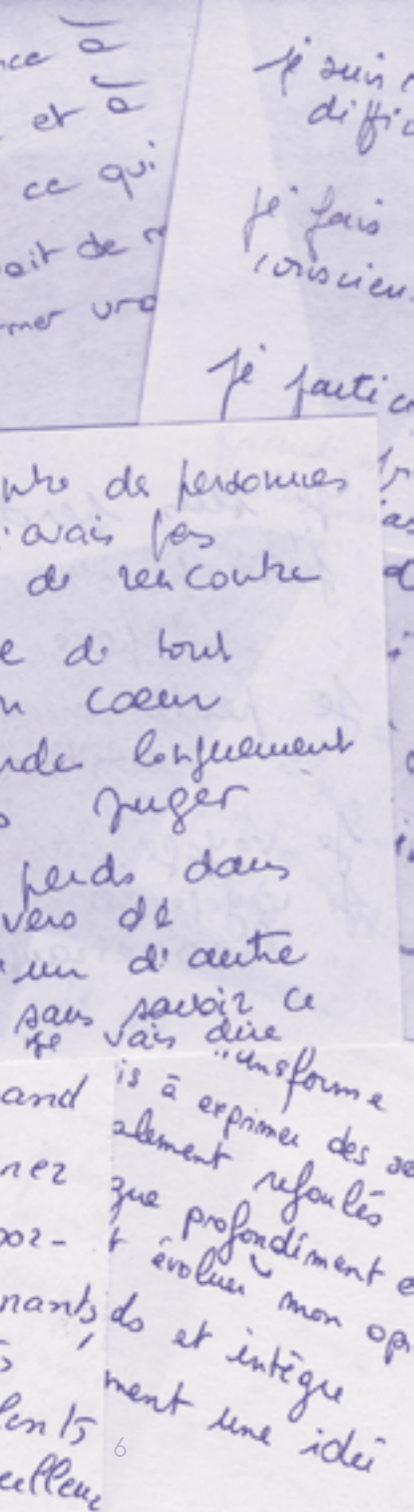 et à
ce qui
ait de
je suis
diffic
je fais
conscien
je partic
ntre de personnes
'avais pas
de rencontre
e de tout
n coeur
nde longuement
s juger
perds dans
vers de
'un d'autre
sans savoir ce
je vais dire
and
nez
por-
nants
lents
eilleur
ansforme
is à exprimer des se
alement refoulés
que profondément e
t évoluer mon opi
ds et intègre
ment une idée
6